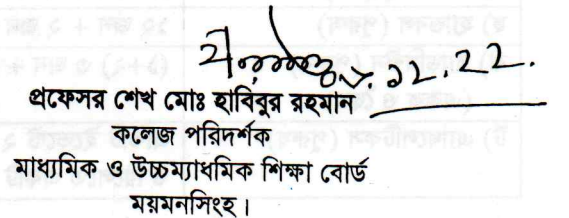 ১২.২২.
প্রফেসর শেখ মোঃ হাবিবুর রহমান
কলেজ পরিদর্শক
মাধ্যমিক ও উচ্চম্যাধমিক শিক্ষা বোর্ড
ময়মনসিংহ।